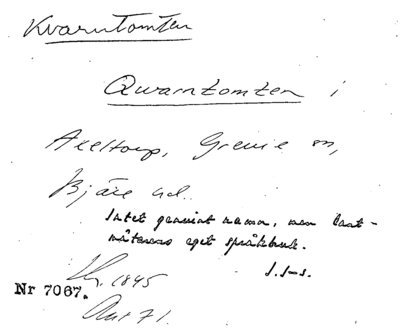 Kvarntomten
Qwarntomten i
Axeltorp, Grevie sn,
Bjäre hd.
Intet genuint namn, men lant-
mäterens eget språkbruk.
J. J-s.
1845
Nr 7067.
Akt 71.